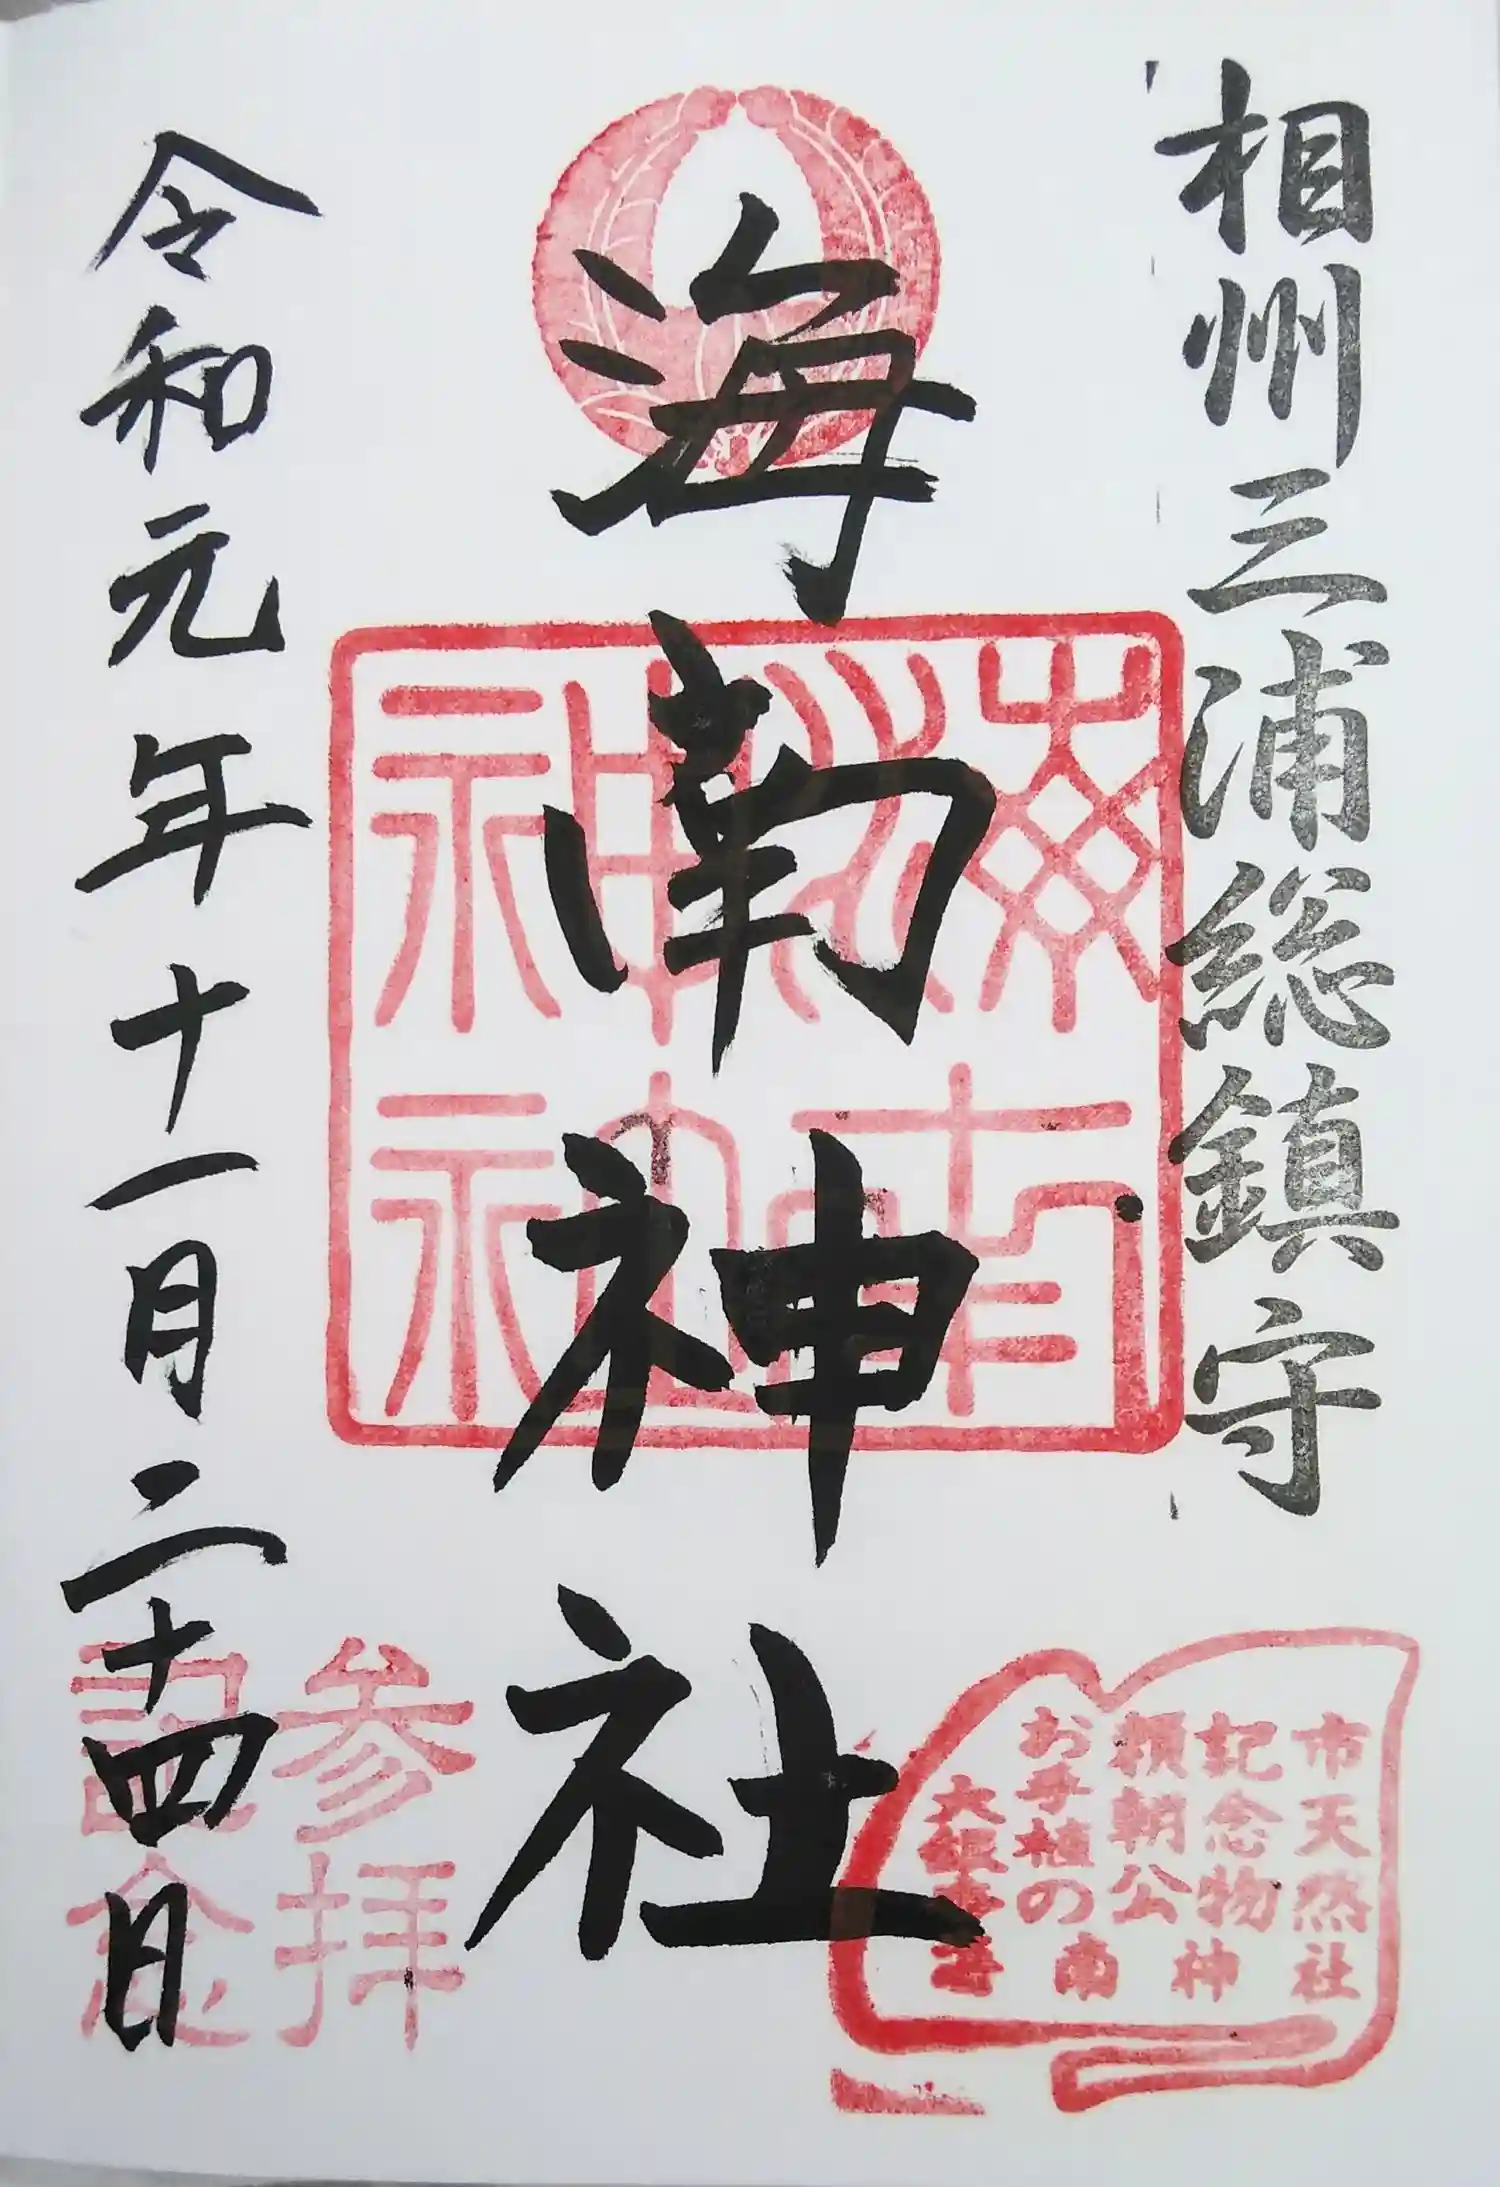 相州三浦総鎮守
海南神社
海南神社
神社
令和元年十一月二十四日
参拝
記念
市天然
記念物
頼朝公
お手植の
大銀杏
海南神社